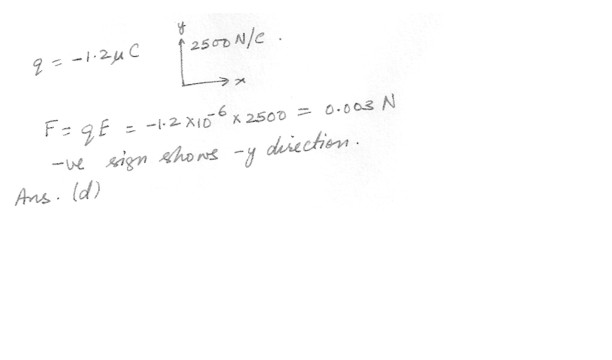 y
q = -1.2μC
2500 N/C .
x
F = qE = -1.2 x10⁻⁶ x 2500 = 0.003 N
-ve sign shows -y direction.
Ans. (d)